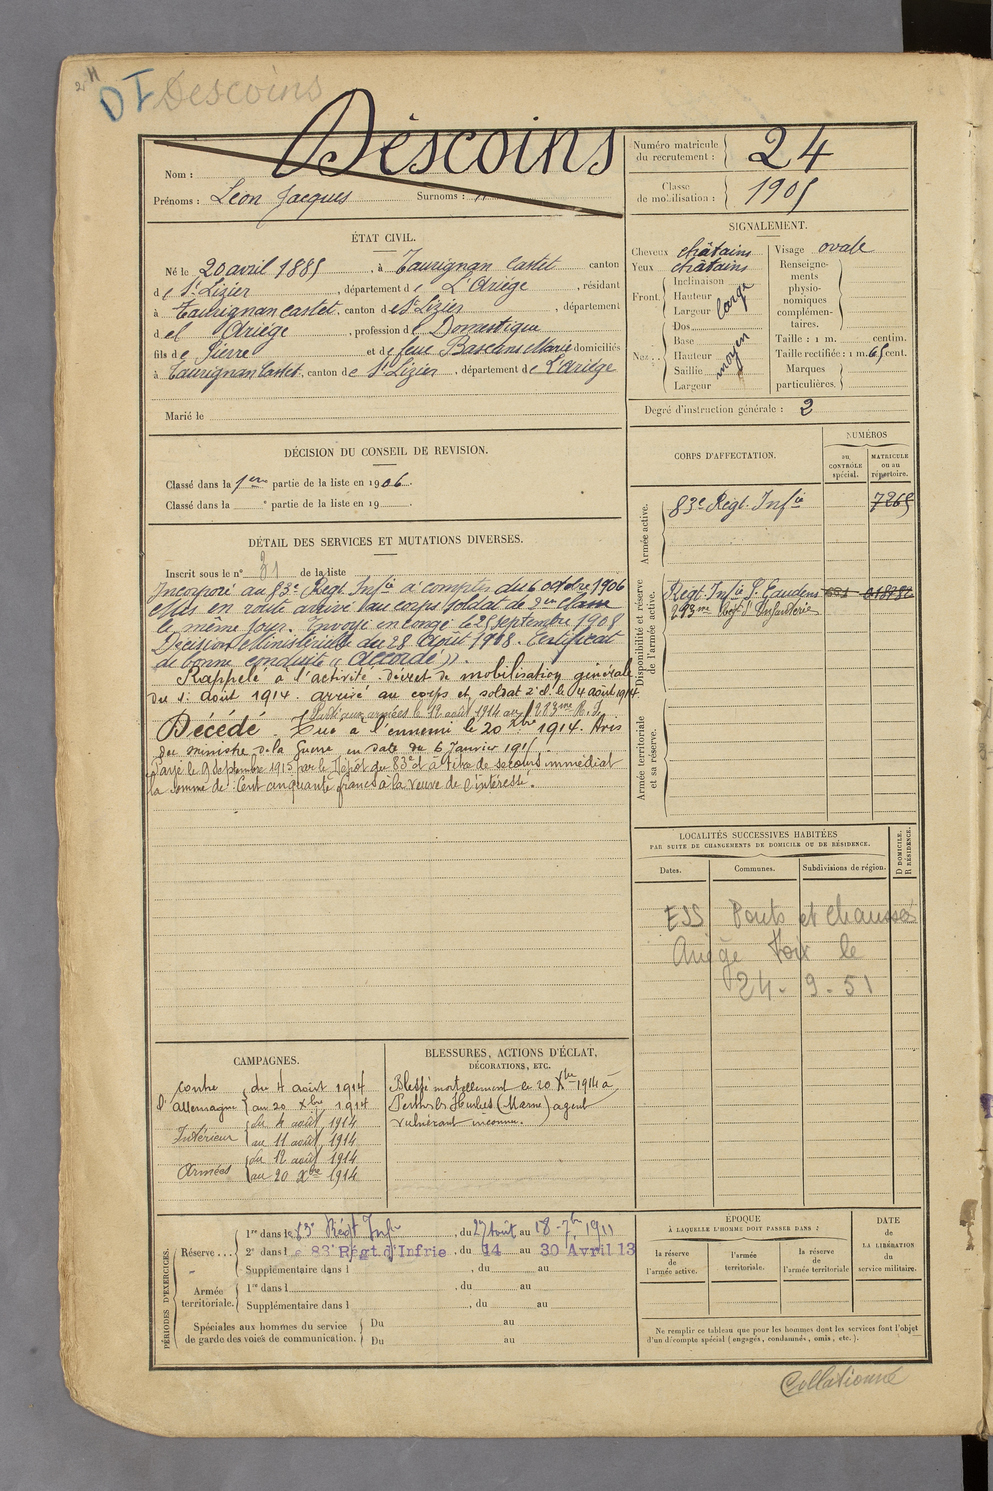 DI Descoins
Nom : Descoins
Prénoms : Léon Jacques Surnoms : "
Numéro matricule du recrutement : 24
Classe de mobilisation : 1905
ÉTAT CIVIL.
Né le 20 avril 1885, à Taurignan Castet canton
de St Lizier, département de L'Ariége, résidant
à Taurignan Castet, canton de St Lizier, département
d el Ariége, profession de Domestique
fils de Pierre et de feue Basclens Marie domiciliés
à Taurignan Castet, canton de St Lizier, département de L'Ariége
Marié le
SIGNALEMENT.
Cheveux châtains
Yeux châtains
Front. Inclinaison
Hauteur
Largeur
large
Nez.. Dos
Base
Hauteur
Saillie
Largeur
moyen
Visage ovale
Renseigne-
ments
physio-
nomiques
complémen-
taires.
Taille : 1 m. centim.
Taille rectifiée : 1 m. 65 cent.
Marques
particulières.
Degré d'instruction générale : 2
DÉCISION DU CONSEIL DE REVISION.
Classé dans la 1ere partie de la liste en 1906.
Classé dans la " partie de la liste en 19 .
DÉTAIL DES SERVICES ET MUTATIONS DIVERSES.
Inscrit sous le n° 31 de la liste
Incorporé au 83e Régt. Infie à compter du 6 octobre 1906
Mis en route arrivé au corps soldat de 2me classe
le même jour. Envoyé en congé le 25 septembre 1908
Décision Ministérielle du 28 Août 1908. Certificat
de bonne conduite « Accordé ».
Rappelé à l'activité décret de mobilisation générale
du 1er Août 1914. arrivé au corps et soldat 2e cl. le 4 août 1914.
Parti aux armées le 12 août 1914 au 223me R.I.
Décédé. Tué à l'ennemi le 20 Xbre 1914. Avis
du ministre de la Guerre en date du 6 Janvier 1915.
Payé le 9 septembre 1915 par le Dépôt du 83e d à titre de secours immédiat
la somme de : Cent cinquante francs à la veuve de l'intéressé.
CORPS D'AFFECTATION.
NUMÉROS
DU CONTRÔLE spécial.
MATRICULE ou au répertoire.
Armée active.
83e Régt. Infie 7265
Disponibilité et réserve de l'armée active.
Régt. Infie St Gaudens
293me Régt d'Infanterie
Armée territoriale et sa réserve.
LOCALITÉS SUCCESSIVES HABITÉES
PAR SUITE DE CHANGEMENTS DE DOMICILE OU DE RÉSIDENCE.
Dates. Communes. Subdivisions de région. D DOMICILE. R RÉSIDENCE.
ESS Ponts et chaussés
Ariège Foix le
24 - 9 - 51
CAMPAGNES.
Contre l'Allemagne du 4 août 1914
au 20 Xbre 1914
Intérieur du 4 août 1914
au 11 août 1914
Armées du 12 août 1914
au 20 Xbre 1914
BLESSURES, ACTIONS D'ÉCLAT,
DÉCORATIONS, ETC.
Blessé mortellement le 20 Xbre 1914 à
Perthes les Hurlus (Marne) agent
vulnérant inconnu.
PÉRIODES D'EXERCICES.
Réserve ... 1re dans le 83e Régt Infie, du 27 Août au 18-7b 1911
2e dans le 83e Régt. d'Infrie, du 14 au 30 Avril 13
Supplémentaire dans l , du au
Armée territoriale. 1re dans l , du au
Supplémentaire dans l , du au
Spéciales aux hommes du service
de garde des voies de communication.
Du au
Du au
ÉPOQUE
À LAQUELLE L'HOMME DOIT PASSER DANS :
la réserve de l'armée active.
l'armée territoriale.
la réserve de l'armée territoriale
DATE
DE LA LIBÉRATION
du
service militaire.
Ne remplir ce tableau que pour les hommes dont les services font l'objet
d'un décompte spécial (engagés, condamnés, omis, etc.).
Collationné